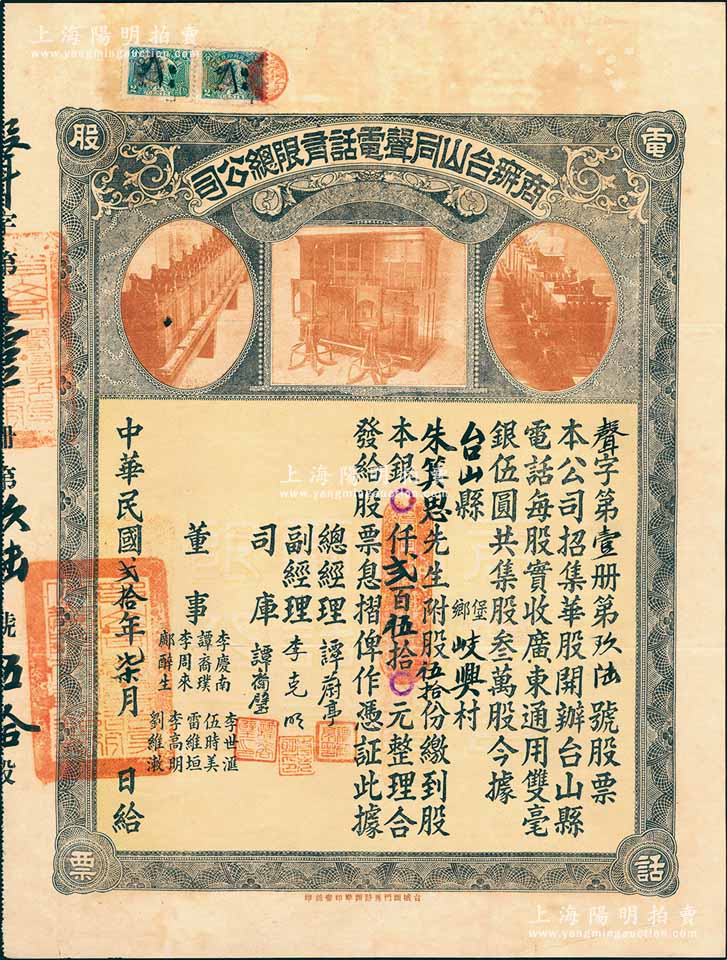 上海陽明拍賣
www.yangmingauction.com
電
話
股
票
商辦台山同聲電話有限總公司
聲字第壹册第玖陆號股票
本公司招集華股開辦台山縣
電話每股實收廣東通用雙毫
銀伍圓共集股叁萬股今據
台山縣 堡鄉 岐興村
朱箕恩先生附股伍拾份繳到股
本銀〇仟弍百伍拾〇元整理合
發給股票息摺俾作憑証此據
總經理 譚蔚亭
副經理 李克明
司庫 譚蘭璧
董事
李慶南 李世滙
譚裔璞 伍時美
李周來 雷維垣
鄺醉生 李高明
劉維漖
中華民國弍拾年柒月 日給
第 册第玖陆號伍拾股
上海陽明拍賣
www.yangmingauction.com
上海陽明拍賣
www.yangmingauction.com